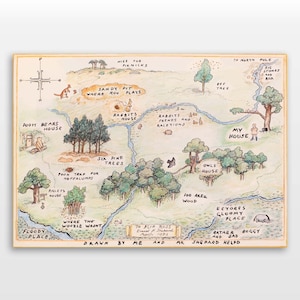 NICE FOR
PICNICKS
TO NORTH POLE
BIG
STONES
AND
ROX
SANDY PIT
WHERE ROO PLAYS
BEE
TREE
RABBITS
HOUSE
RABBITS
FRENDS AND
RALETIONS
POOH BEARS
HOUSE
MY
HOUSE
SIX PINE
TREES
POOH TRAP FOR
HEFFALUMPS
OWLS
HOUSE
PIGLETS
HOUSE
100 AKER
WOOD
EEYORES
GLOOMY
PLACE
WHERE THE
WOOZLE WASNT
FLOODY
PLACE
RATHER BOGGY
AND SAD
DRAWN BY ME AND MR SHEPARD HELPD